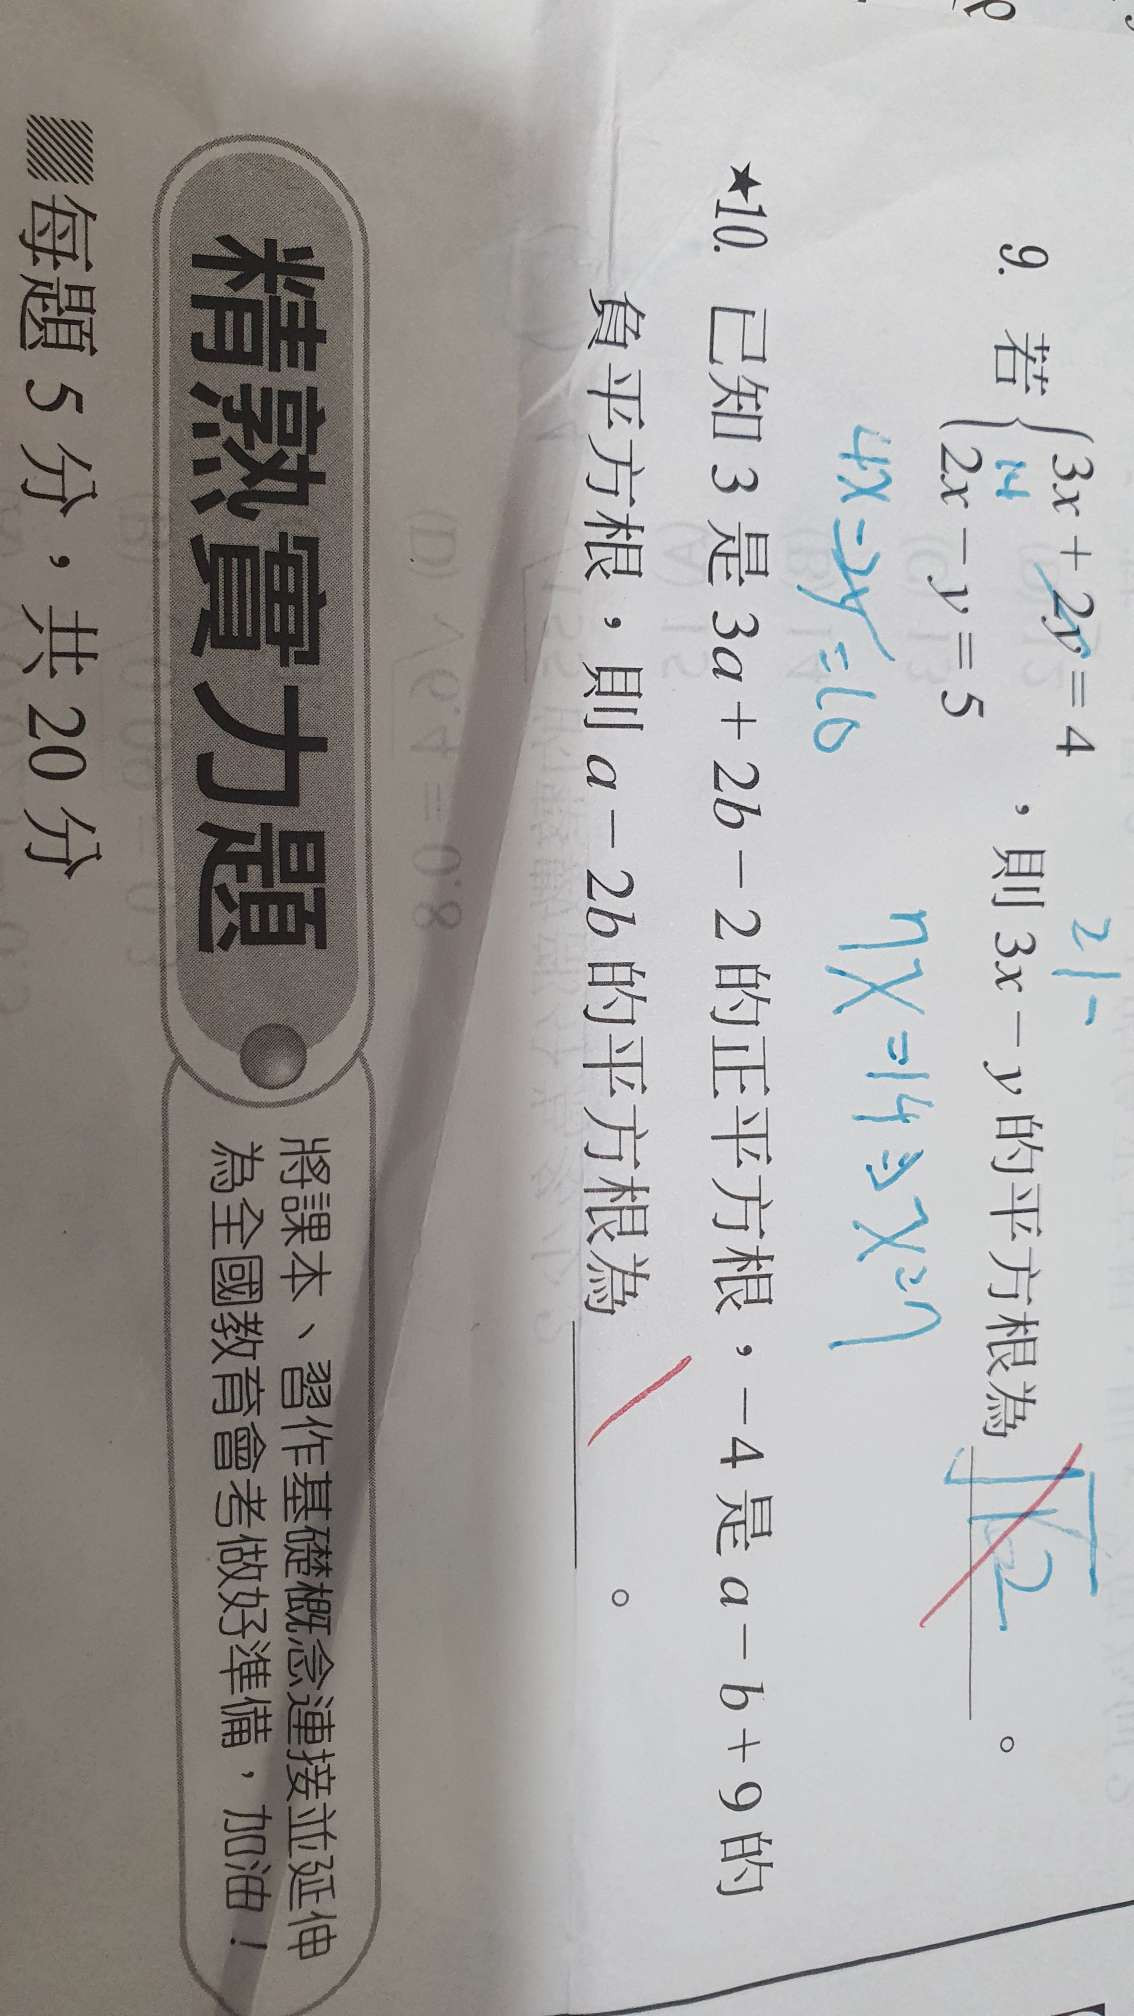 9. 若{3x + 2y = 4
2x - y = 5
,則 3x - y 的平方根為 √12 。
14
21 -
4x - 2y = 10
7x = 14 ⇒ x = 7
★10. 已知 3 是 3a + 2b - 2 的正平方根,-4 是 a - b + 9 的
負平方根,則 a - 2b 的平方根為 。
精熟實力題
將課本、習作基礎概念連接並延伸
為全國教育會考做好準備,加油!
每題 5 分,共 20 分